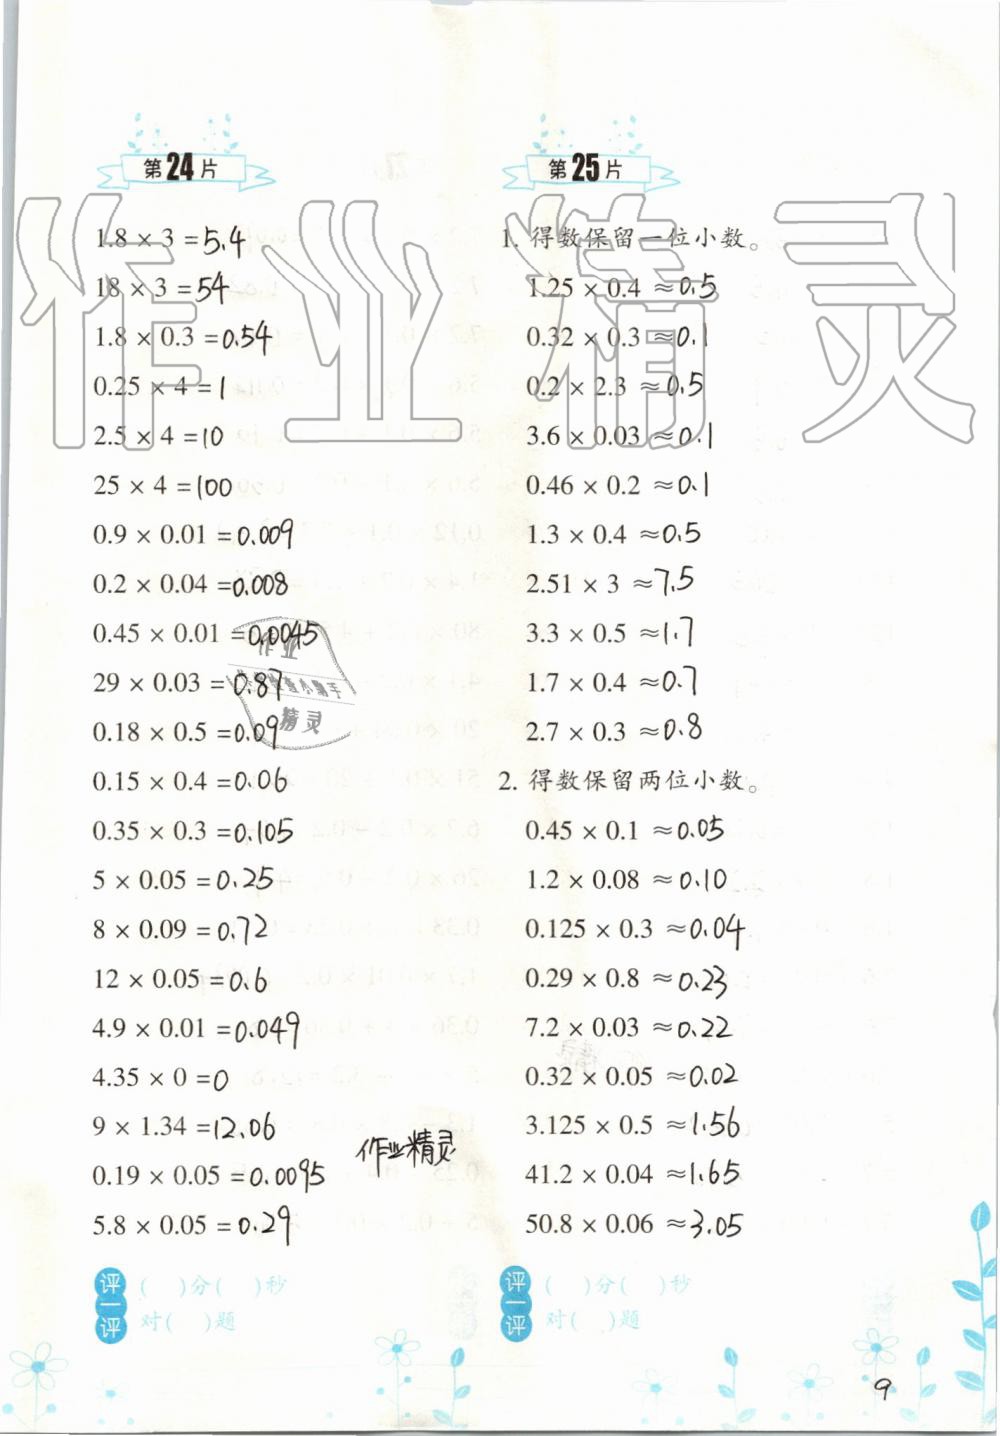 第24片
1.8 × 3 = 5.4
18 × 3 = 54
1.8 × 0.3 = 0.54
0.25 × 4 = 1
2.5 × 4 = 10
25 × 4 = 100
0.9 × 0.01 = 0.009
0.2 × 0.04 = 0.008
0.45 × 0.01 = 0.0045
29 × 0.03 = 0.87
0.18 × 0.5 = 0.09
0.15 × 0.4 = 0.06
0.35 × 0.3 = 0.105
5 × 0.05 = 0.25
8 × 0.09 = 0.72
12 × 0.05 = 0.6
4.9 × 0.01 = 0.049
4.35 × 0 = 0
9 × 1.34 = 12.06
0.19 × 0.05 = 0.0095
5.8 × 0.05 = 0.29
作业精灵
评一评
(  )分(  )秒
对(  )题
第25片
1. 得数保留一位小数。
1.25 × 0.4 ≈ 0.5
0.32 × 0.3 ≈ 0.1
0.2 × 2.3 ≈ 0.5
3.6 × 0.03 ≈ 0.1
0.46 × 0.2 ≈ 0.1
1.3 × 0.4 ≈ 0.5
2.51 × 3 ≈ 7.5
3.3 × 0.5 ≈ 1.7
1.7 × 0.4 ≈ 0.7
2.7 × 0.3 ≈ 0.8
2. 得数保留两位小数。
0.45 × 0.1 ≈ 0.05
1.2 × 0.08 ≈ 0.10
0.125 × 0.3 ≈ 0.04
0.29 × 0.8 ≈ 0.23
7.2 × 0.03 ≈ 0.22
0.32 × 0.05 ≈ 0.02
3.125 × 0.5 ≈ 1.56
41.2 × 0.04 ≈ 1.65
50.8 × 0.06 ≈ 3.05
评一评
(  )分(  )秒
对(  )题
9
作业精灵
作业
精灵